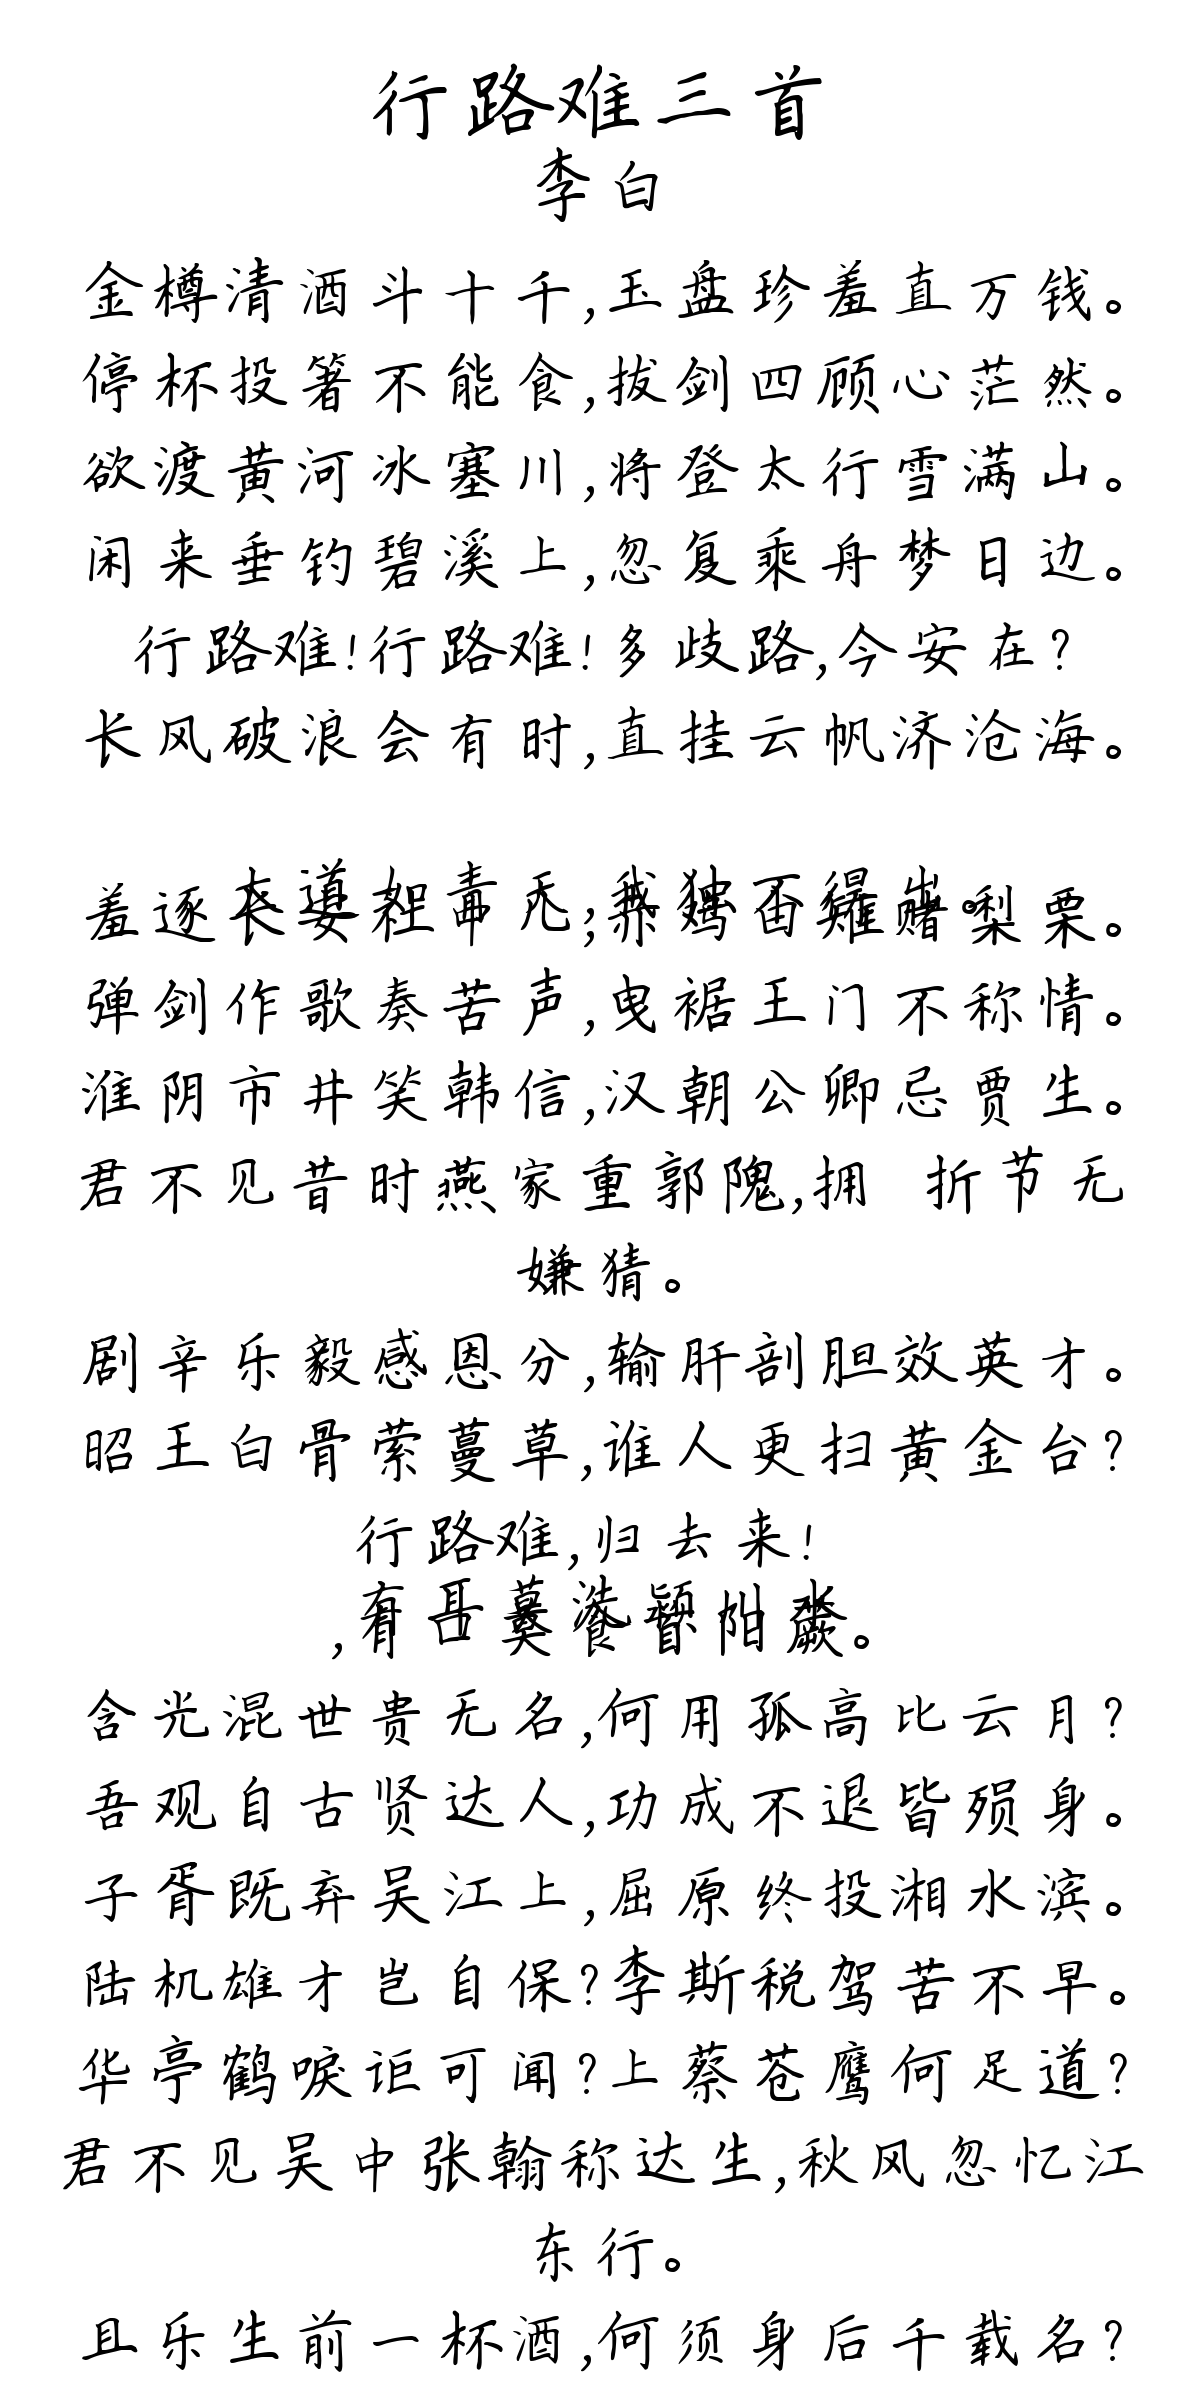 行路难三首
李白
金樽清酒斗十千,玉盘珍羞直万钱。
停杯投箸不能食,拔剑四顾心茫然。
欲渡黄河冰塞川,将登太行雪满山。
闲来垂钓碧溪上,忽复乘舟梦日边。
行路难!行路难!多歧路,今安在?
长风破浪会有时,直挂云帆济沧海。
大道如青天,我独不得出。
羞逐长安社中儿,赤鸡白雉赌梨栗。
弹剑作歌奏苦声,曳裾王门不称情。
淮阴市井笑韩信,汉朝公卿忌贾生。
君不见昔时燕家重郭隗,拥 折节无
嫌猜。
剧辛乐毅感恩分,输肝剖胆效英才。
昭王白骨萦蔓草,谁人更扫黄金台?
行路难,归去来!
有耳莫洗颍川水
,有口莫食首阳蕨。
含光混世贵无名,何用孤高比云月?
吾观自古贤达人,功成不退皆殒身。
子胥既弃吴江上,屈原终投湘水滨。
陆机雄才岂自保?李斯税驾苦不早。
华亭鹤唳讵可闻?上蔡苍鹰何足道?
君不见吴中张翰称达生,秋风忽忆江
东行。
且乐生前一杯酒,何须身后千载名?